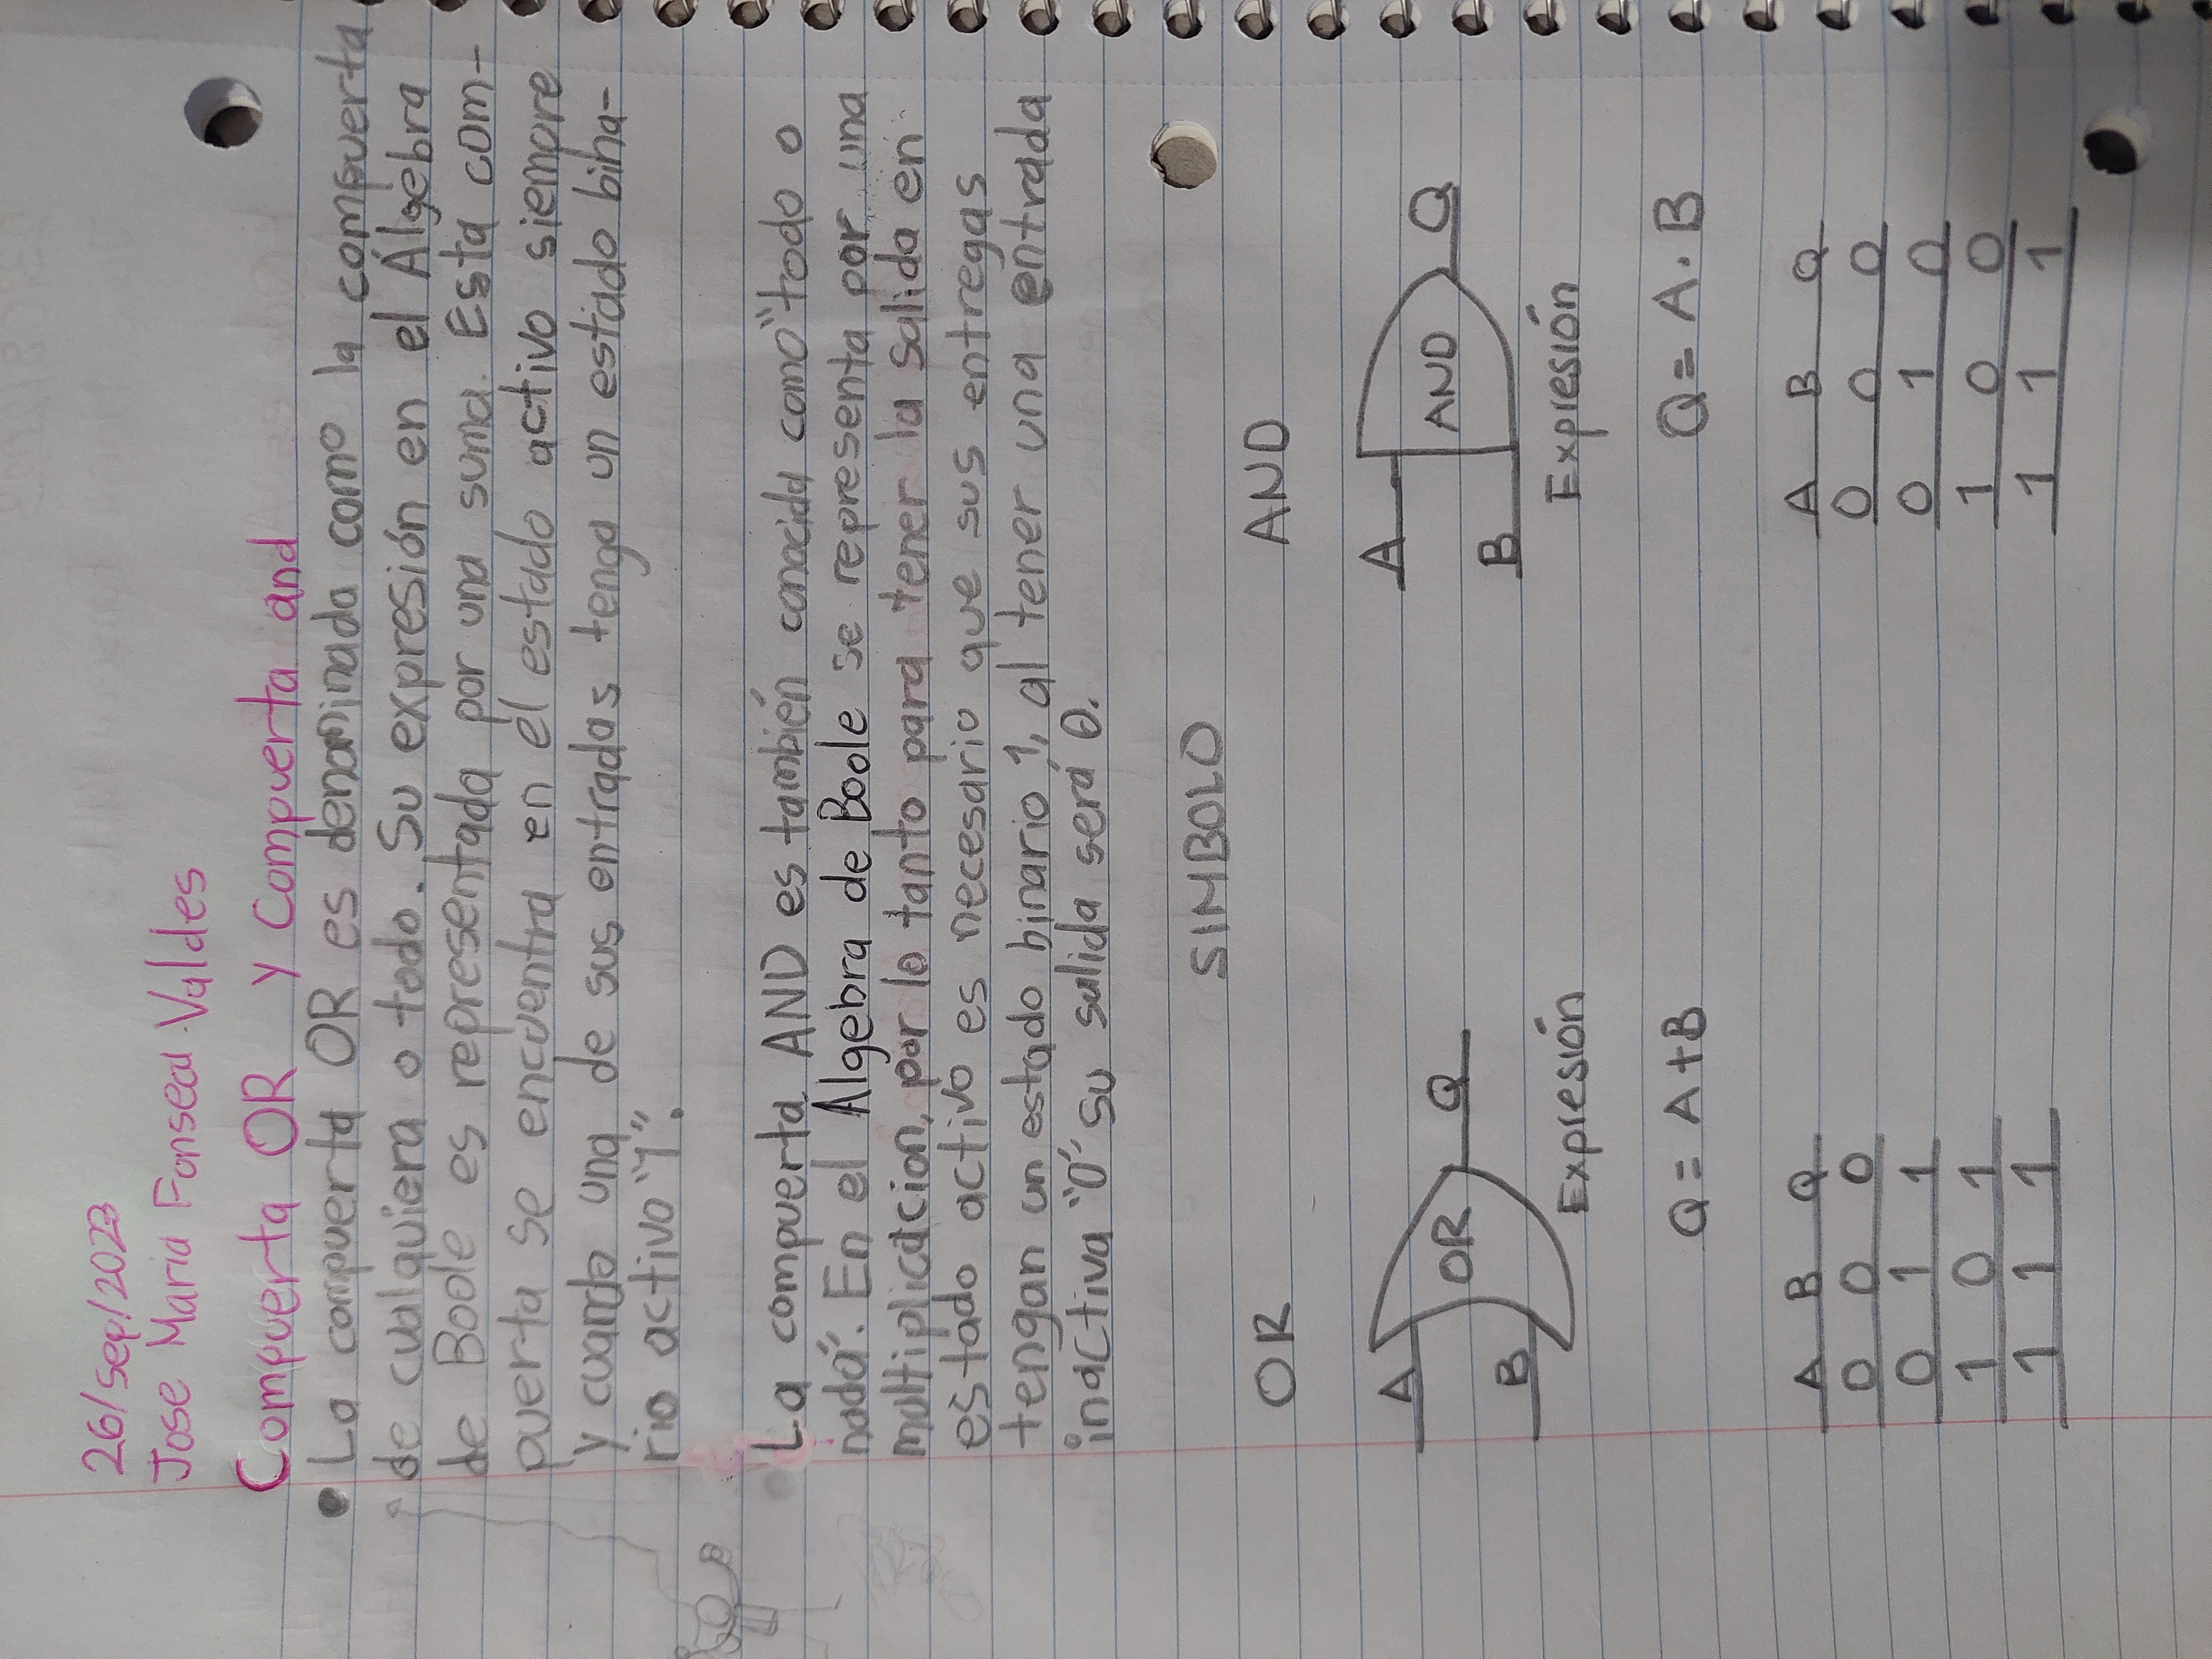 26/sep/2023
Jose Maria Fonseca Valdes
Compuerta OR y Compuerta and
La compuerta OR es denominada como la compuerta
de cualquiera o todo. Su expresión en el Álgebra
de Boole es representada por una suma. Esta com-
puerta se encuentra en el estado activo siempre
y cuando una de sus entradas tenga un estado bina-
rio activo "1".
La compuerta AND es también conocida como "todo o
nada". En el Algebra de Boole se representa por una
multiplicacion, por lo tanto para tener la salida en
estado activo es necesario que sus entregas
tengan un estado binario 1, al tener una entrada
inactiva "0" su salida será 0.
SIMBOLO
OR AND
A OR Q A AND Q
B B
Expresión Expresión
Q = A+B Q = A.B
A B Q A B Q
0 0 0 0 0 0
0 1 1 0 1 0
1 0 1 1 0 0
1 1 1 1 1 1